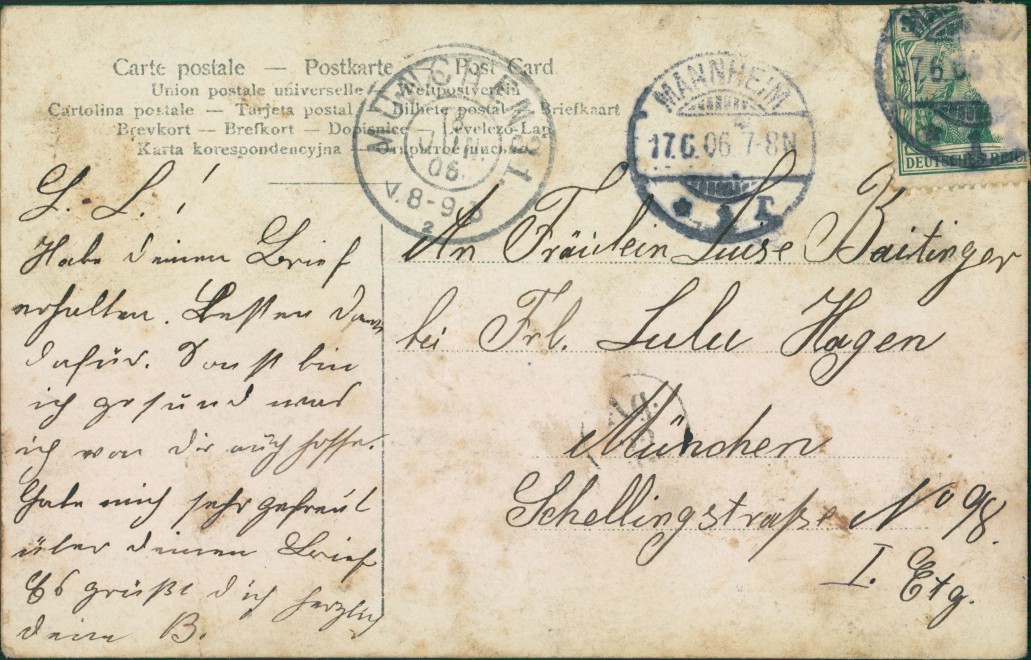 Carte postale — Postkarte — Post Card
Union postale universelle — Weltpostverein
Cartolina postale — Tarjeta postal — Bilhete postal — Briefkaart
Brevkort — Brefkort — Dopisnice — Levelező-Lap
Karta korespondencyjna —
MÜNCHEN 31.
17 JUN.
06.
V. 8-9
2
MANNHEIM
17.6.06 7-8N
* 1 r.
17.6.06
DEUTSCHES REICH
L. L.!
Habe deinen Brief
erhalten. Besten Dank
dafür. Sonst bin
ich gesund was
ich von dir auch hoffe.
Habe mich sehr gefreut
über deinen Brief
Es grüßt dich herzlich
deine B.
An Fräulein Luise Baitinger
bei Frl. Lulu Hagen
München
Schellingstraße No 98.
I. Etg.